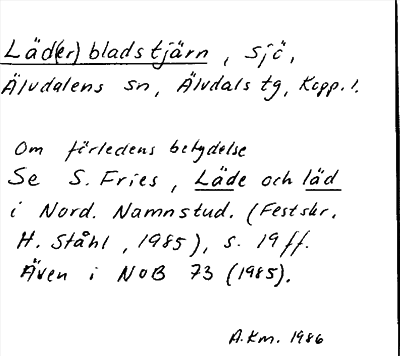 Läd(er)bladstjärn, sjö,
Älvdalens sn, Älvdals tg, Kopp. l.
Om förledens betydelse
Se S. Fries, Läde och läd
i Nord. Namnstud. (Festskr.
H. Ståhl, 1985), s. 19 ff.
Även i NoB 73 (1985).
A.Km. 1986